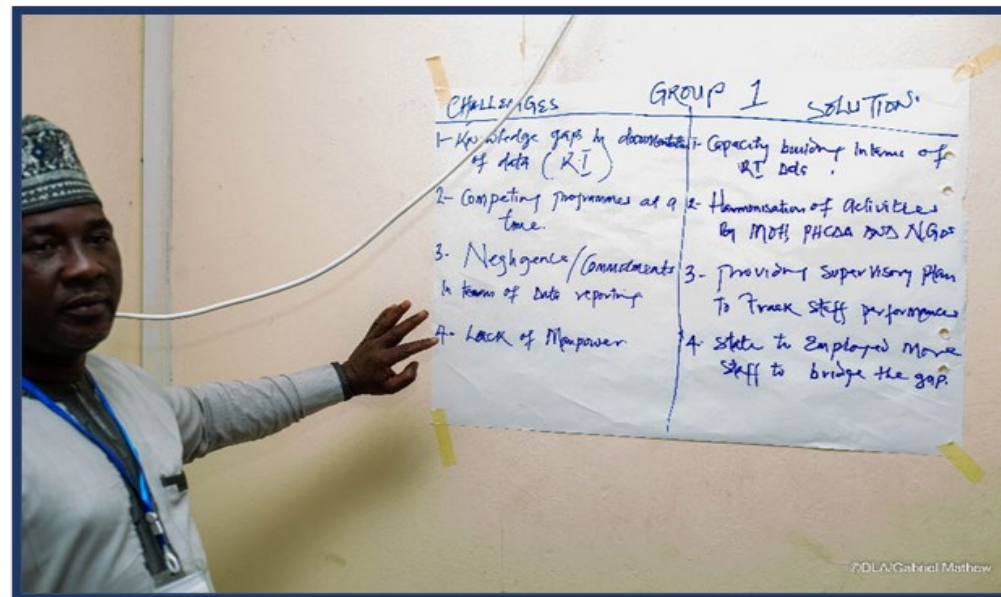 GROUP 1
CHALLENGES
1- Knowledge gaps in
of data (RI)
2- Competing programmes at a
time.
3. Negligence/Commitments
In terms of Data reporting
4- Lack of Manpower
SOLUTION.
1- Capacity building Interms of
RI
2- Harmonisation of activities
By MOH, PHCDA AND NGOs
3- Providing Supervisory plan
To Track Staff performance
4. State to Employed More
Staff to bridge the gap.
©DLA/Gabriel Mathew